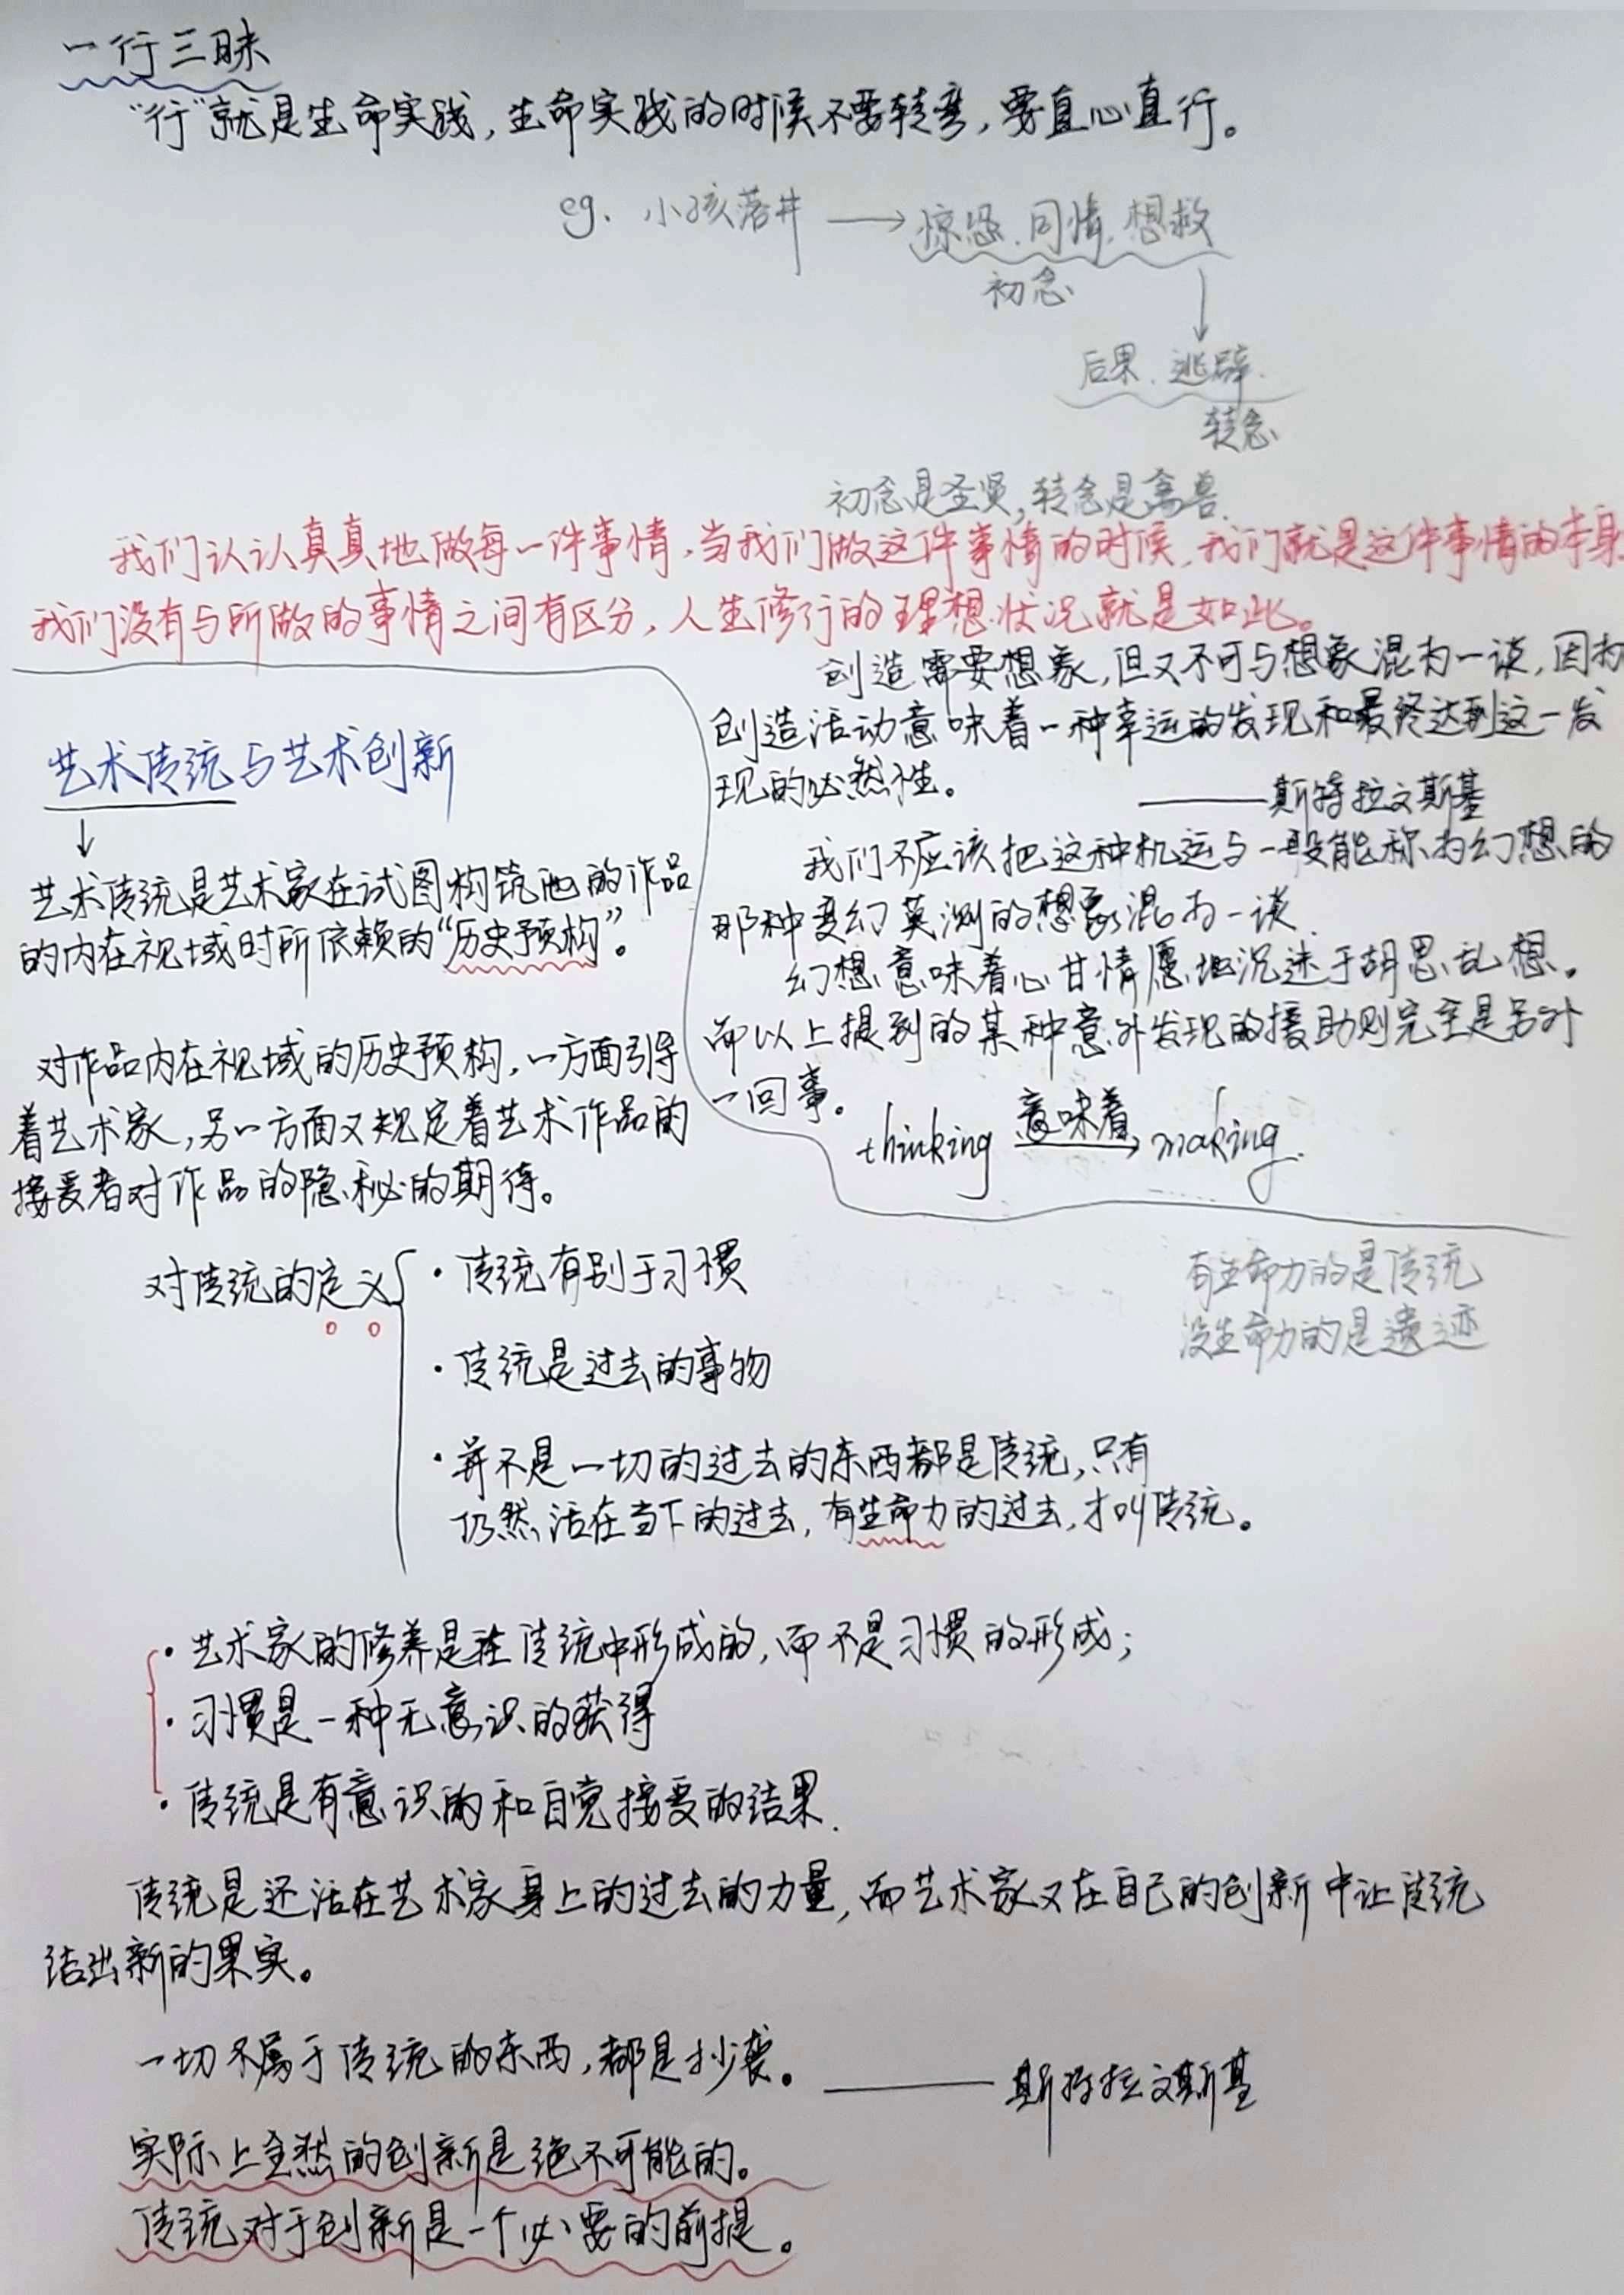 一行三昧
"行"就是生命实践，生命实践的时候不要转弯，要直心直行。
eg. 小孩落井 → 惊恐、同情、想救
初念
↓
后果、逃辟.
转念
初念是圣贤，转念是禽兽.
我们认认真真地做每一件事情，当我们做这件事情的时候，我们就是这件事情的本身
我们没有与所做的事情之间有区分，人生修行的理想状况就是如此。
创造需要想象，但又不可与想象混为一谈，因为
创造活动意味着一种幸运的发现和最终达到这一发
现的必然性。
——斯特拉文斯基
我们不应该把这种机运与一般能称为幻想的
那种变幻莫测的想象混为一谈.
幻想意味着心甘情愿地沉迷于胡思乱想。
而以上提到的某种意外发现的援助则完全是另外
一回事。
thinking 意味着→ making.
艺术传统与艺术创新
↓
艺术传统是艺术家在试图构筑他的作品
的内在视域时所依赖的"历史预构"。
对作品内在视域的历史预构，一方面引导
着艺术家，另一方面又规定着艺术作品的
接受者对作品的隐秘的期待。
对传统的定义
·传统有别于习惯
·传统是过去的事物
·并不是一切的过去的东西都是传统，只有
仍然活在当下的过去，有生命力的过去，才叫传统。
有生命力的是传统
没生命力的是遗迹
·艺术家的修养是在传统中形成的，而不是习惯的形成；
·习惯是一种无意识的获得
·传统是有意识的和自觉接受的结果.
传统是还活在艺术家身上的过去的力量，而艺术家又在自己的创新中让传统
结出新的果实。
一切不属于传统的东西，都是抄袭。——斯特拉文斯基
实际上全然的创新是绝不可能的。
传统对于创新是一个必要的前提。